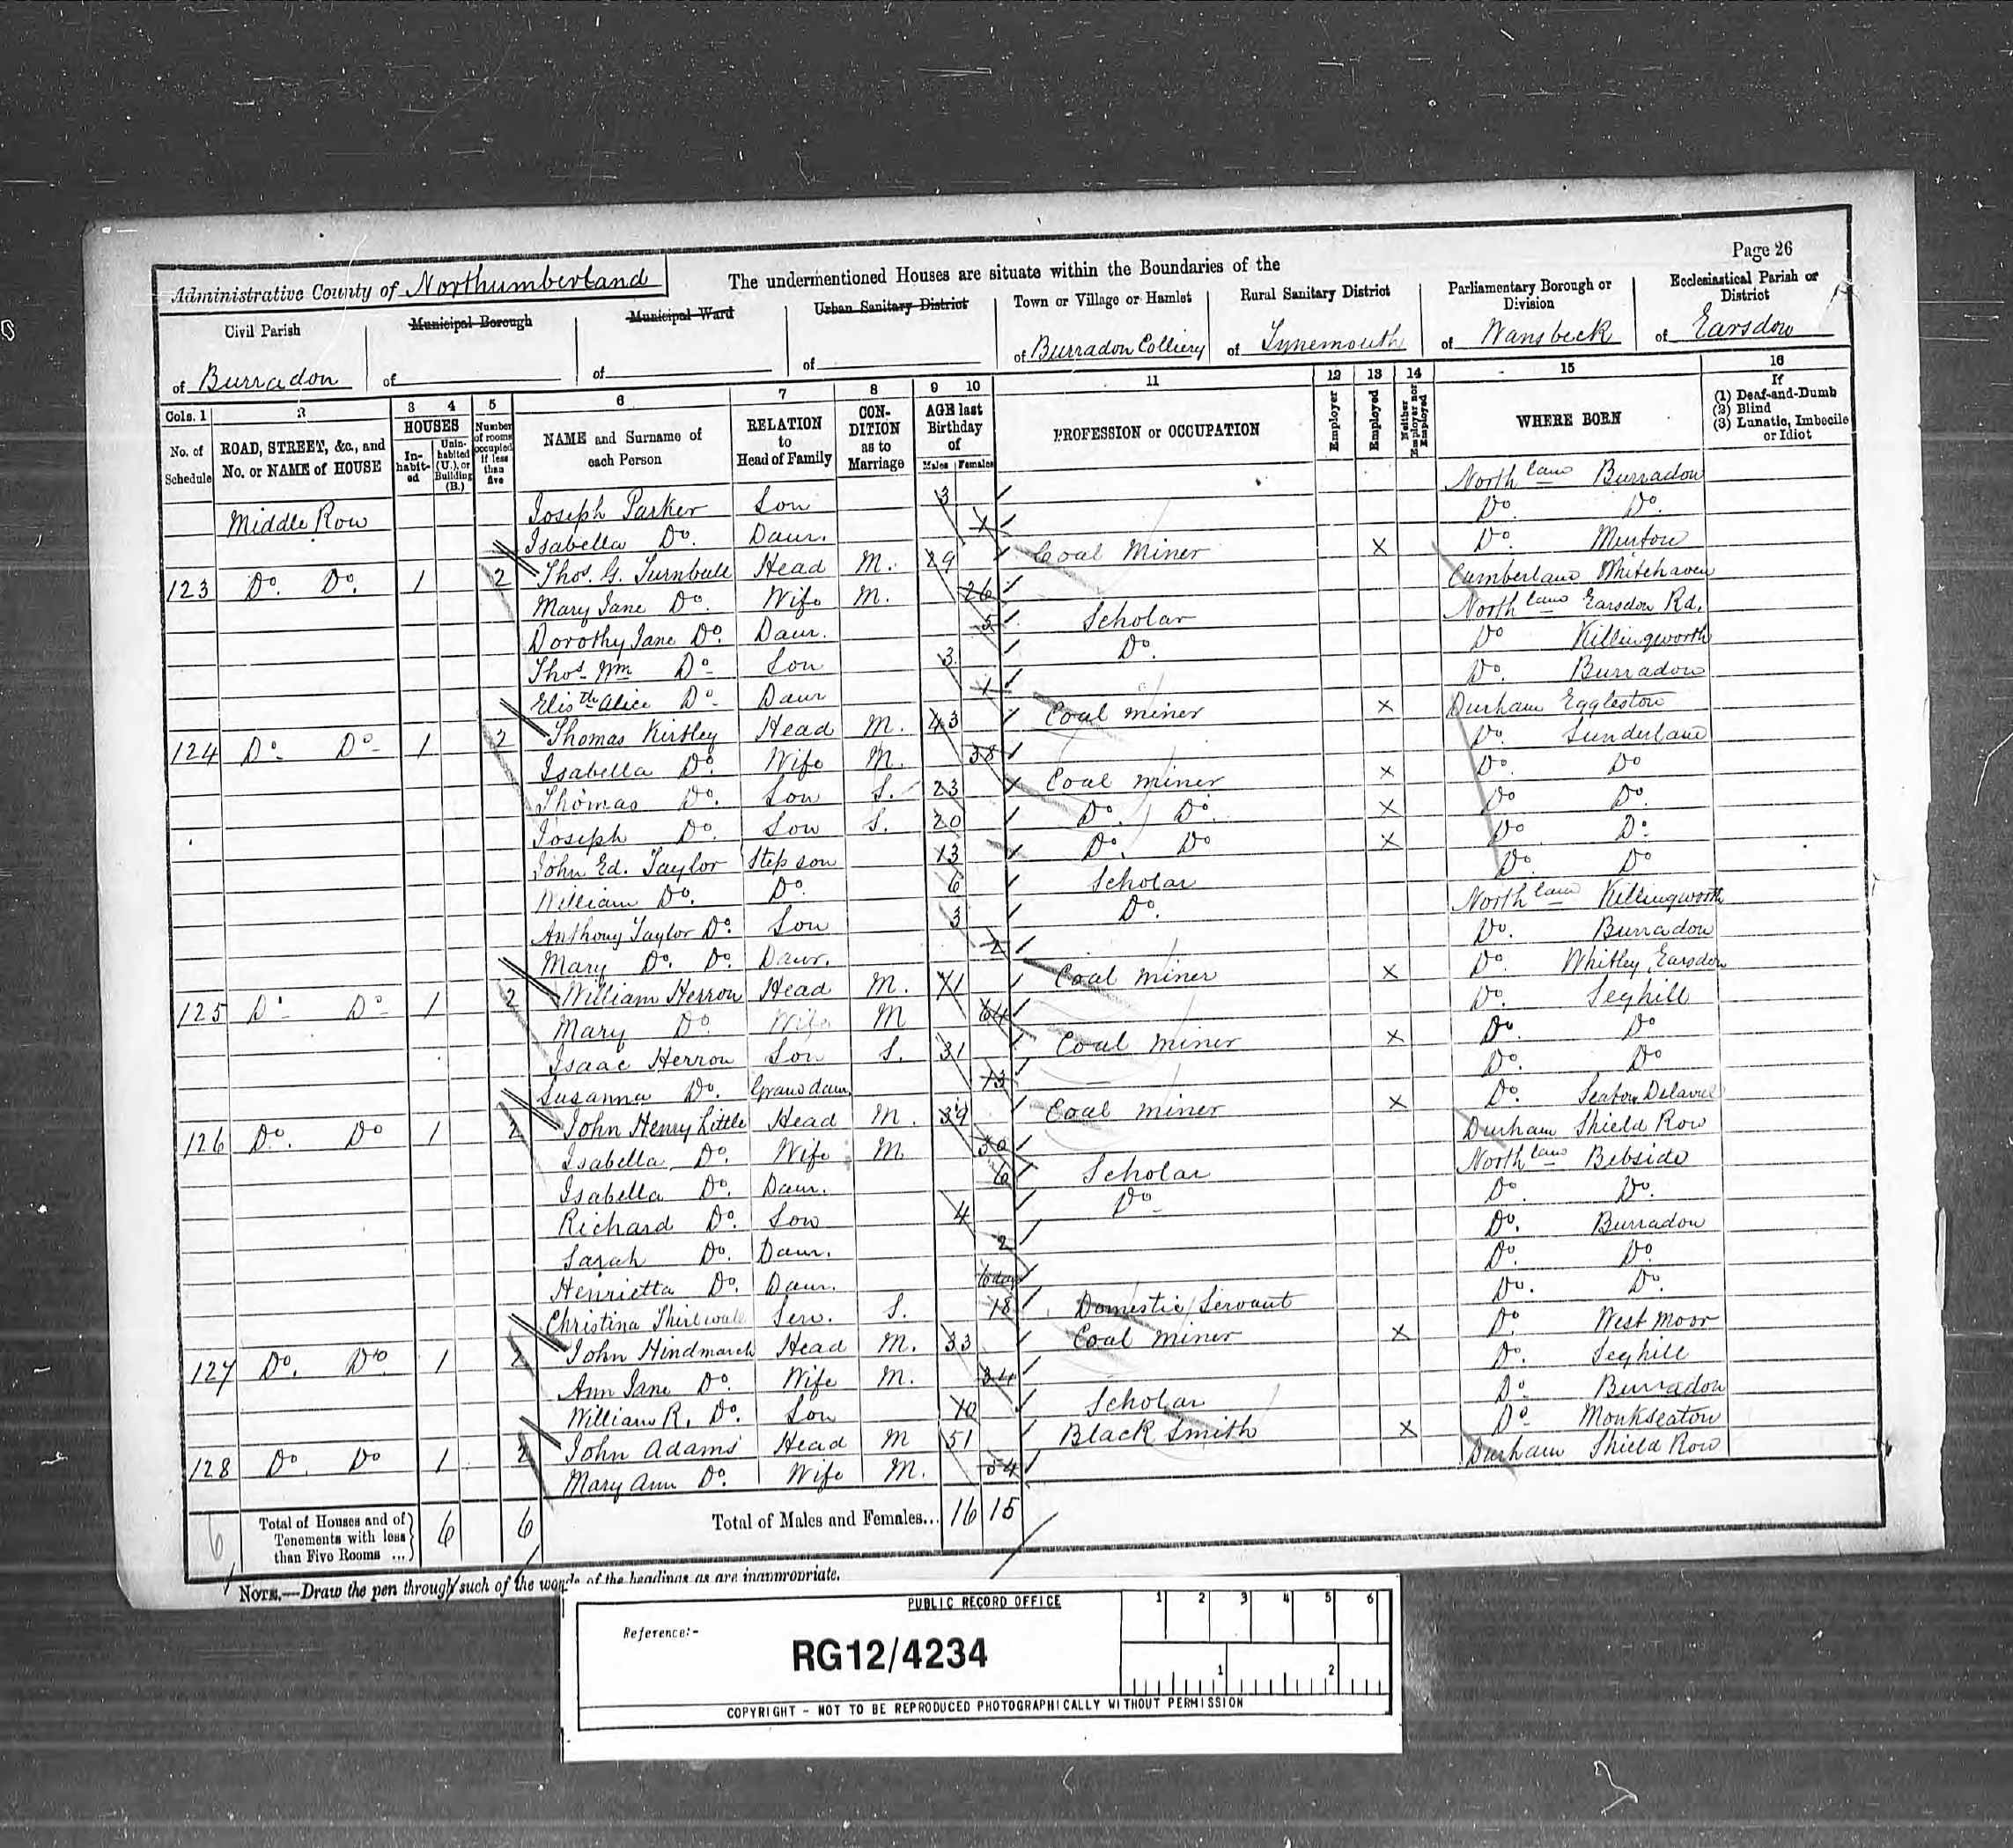 Page 26
Administrative County of Northumberland
The undermentioned Houses are situate within the Boundaries of the
Civil Parish of Burradon
Municipal Borough of
Municipal Ward of
Urban Sanitary District of
Town or Village or Hamlet of Burradon Colliery
Rural Sanitary District of Tynemouth
Parliamentary Borough or Division of Wansbeck
Ecclesiastical Parish or District of Earsdon
Cols. 1 2 3 4 5 6 7 8 9 10 11 12 13 14 15 16
No. of Schedule
ROAD, STREET, &c., and No. or NAME of HOUSE
HOUSES
In-habit-ed
Unin-habited (U.), or Building (B.)
Number of rooms occupied if less than five
NAME and Surname of each Person
RELATION to Head of Family
CON-DITION as to Marriage
AGE last Birthday of
Males Females
PROFESSION or OCCUPATION
Employer
Employed
Neither Employer nor Employed
WHERE BORN
If (1) Deaf-and-Dumb (2) Blind (3) Lunatic, Imbecile or Idiot
Middle Row Joseph Parker Son 3 Northland Burradon
Isabella Do. Daur. 1 Do. Do.
123 Do. Do. 1 2 Thos. G. Turnbull Head M. 29 Coal Miner X Do. Murton
Mary Jane Do. Wife M. 26 Cumberland Whitehaven
Dorothy Jane Do. Daur. 5 Scholar Northland Earsdon Rd.
Thos. Wm Do. Son 3 Do. Do Killingworth
Elisth Alice Do. Daur 1 Do. Burradon
124 Do. Do. 1 2 Thomas Kirtley Head M. 43 Coal miner X Durham Eggleston
Isabella Do. Wife M. 38 Do. Sunderland
Thomas Do. Son S. 23 Coal miner X Do. Do
Joseph Do. Son S. 20 Do. Do. X Do Do.
John Ed. Taylor Step son 13 Do. Do X Do Do.
William Do. Do. 6 Scholar Do. Do
Anthony Taylor Do. Son 3 Do. Northland Killingworth
Mary Do. Do. Daur. Do. Burradon
125 Do. Do. 1 2 William Herron Head M. 71 Coal miner X Do. Whitley, Earsdon
Mary Do. Wife M 64 Do. Seghill
Isaac Herron Son S. 31 Coal miner X Do. Do
Susanna Do. Grand daur. 13 Do. Do
126 Do. Do 1 2 John Henry Little Head M. 39 Coal miner X Do. Seaton Delaval
Isabella Do. Wife M 30 Durham Shield Row
Isabella Do. Daur. 6 Scholar Northland Bebside
Richard Do. Son 4 Do. Do. Do.
Sarah Do. Daur. 2 Do. Burradon
Henrietta Do. Daur. days Do. Do.
Christina Thirlwall Serv. S. 18 Domestic Servant Do. Do.
127 Do. Do. 1 2 John Hindmarch Head M. 33 Coal miner X Do. West Moor
Ann Jane Do. Wife M. 34 Do. Seghill
William R. Do. Son 10 Scholar Do. Burradon
128 Do. Do 1 2 John Adams Head M 51 Black Smith X Do. Monkseaton
Mary Ann Do. Wife M. 54 Durham Shield Row
6 Total of Houses and of Tenements with less than Five Rooms ... 6 6 Total of Males and Females... 16 15
NOTE.—Draw the pen through such of the words of the headings as are inappropriate.
PUBLIC RECORD OFFICE
Reference:-
RG12/4234
1 2 3 4 5 6
1 2
COPYRIGHT - NOT TO BE REPRODUCED PHOTOGRAPHICALLY WITHOUT PERMISSION